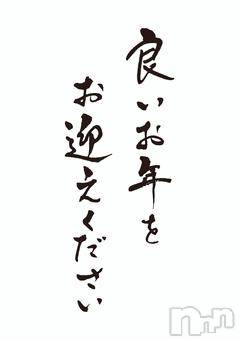 良いお年を
お迎えください